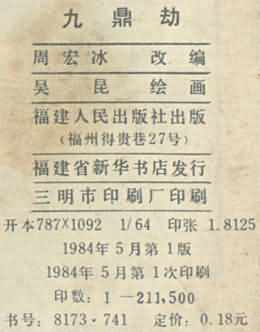 九鼎劫
周宏冰 改编
吴昆 绘画
福建人民出版社出版
(福州得贵巷27号)
福建省新华书店发行
三明市印刷厂印刷
开本787×1092 1/64 印张 1.8125
1984年5月第1版
1984年5月第1次印刷
印数: 1—211,500
书号: 8173·741 定价: 0.18元